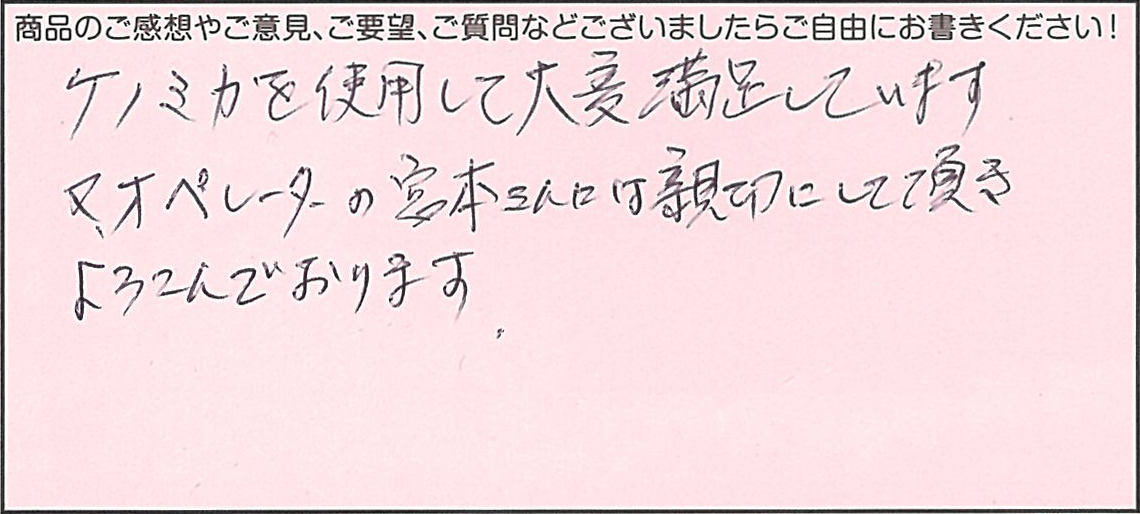 商品のご感想やご意見、ご要望、ご質問などございましたらご自由にお書きください！
ケノミカを使用して大変満足しています
又、オペレーターの宮本さんには親切にして頂き
よろこんでおります。